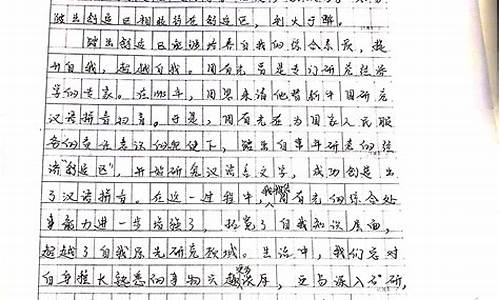 跳出舒适区相比待在舒适区，利大于弊。
跳出舒适区应该培养自我的综合素质，提
升自我，超越自我。周有光原是专门研究经济
学的专家。在1955年，周恩来请他帮新中国研究
汉语拼音方案。于是，周有光在为国家人民服
务的责任意识的促使下，跳出自事年研究的经
济"舒适区"，开始研究汉语言文学，成功创造出
了汉语拼音。在这一过程中，周有光的综合处
事能力进一步增强了，拓宽了自我知识层面，
超越了自我原先研究领域。生活中，我们应对
自身擅长熟悉的事物交越浅层，互与深入研，